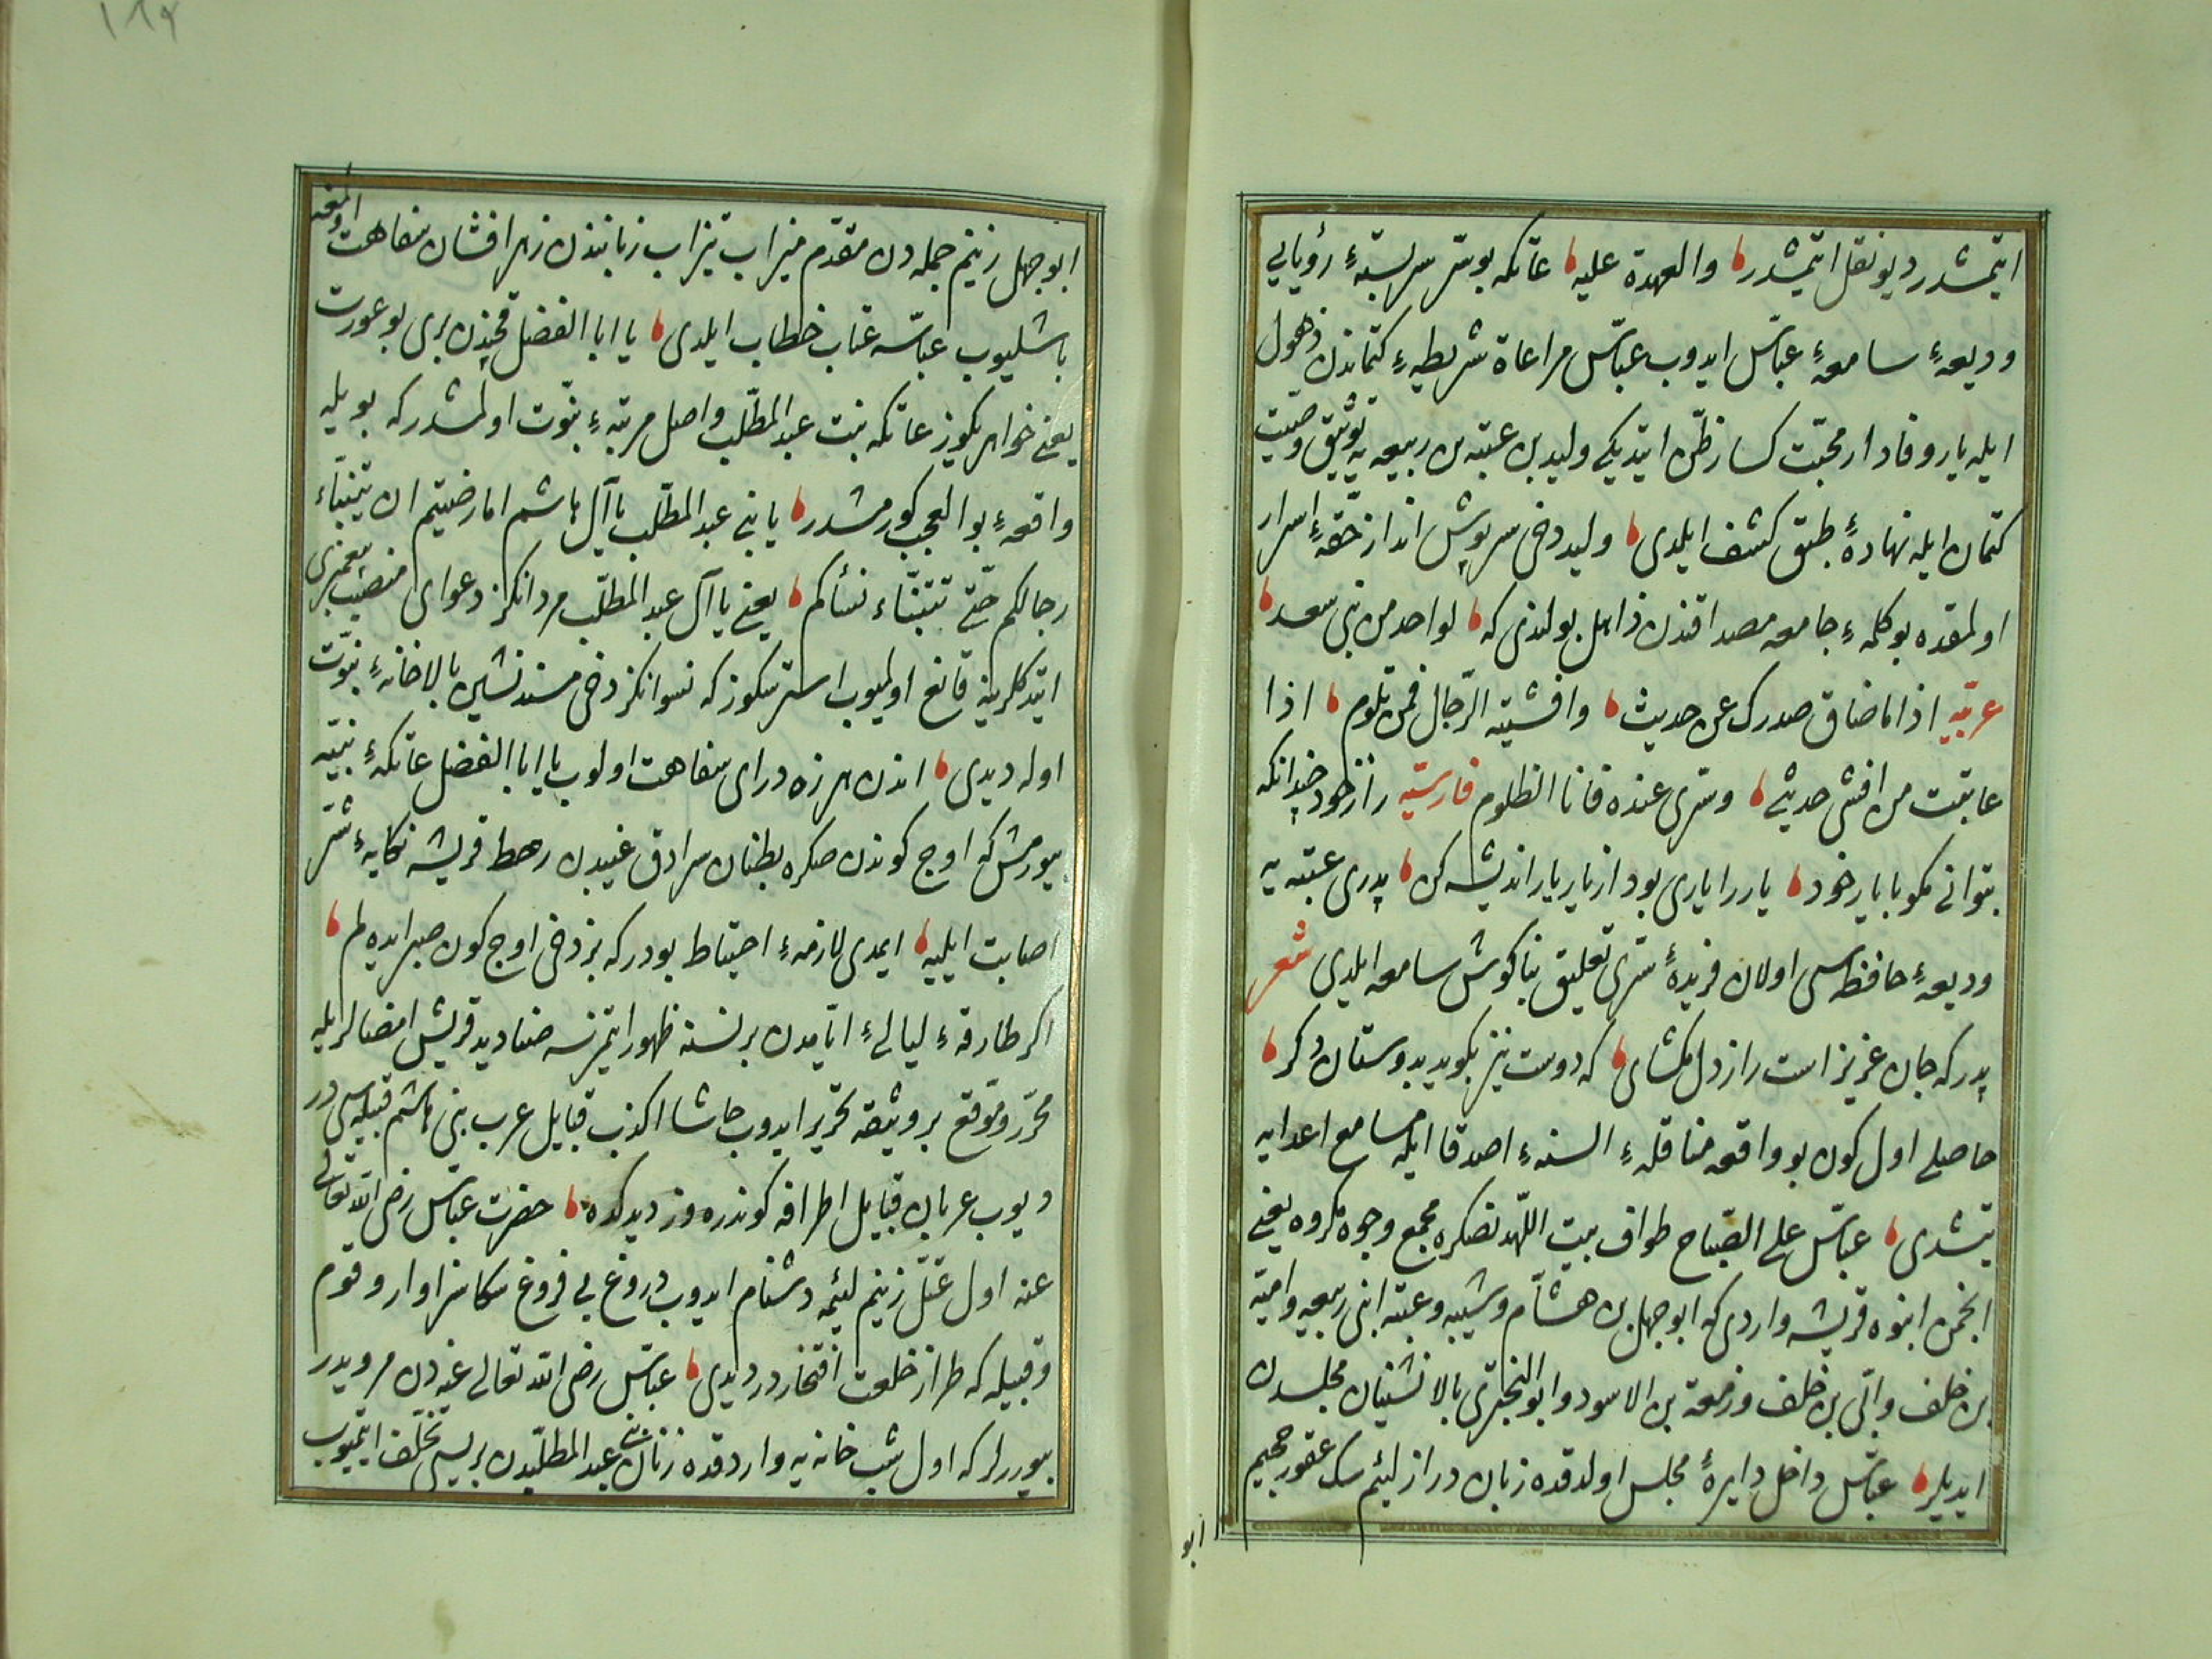 ایتمشدر دیو نقل ایتمشدر والعهدة علیه عاتکه بو سر سربستهٔ رؤیایی
ودیعهٔ سامعهٔ عباس ایدوب عباس مراعاة شریطیهٔ کتماندن ذهول
ایله یار وفادار محبت کسار ظن ایتدیکی ولید بن عتبه بن ربیعه یه توثیق وصیت
کتمان ایله نهادهٔ طبق کشف ایلدی ولید دخی سرپوش انداز حقهٔ اسرار
اولمقده بو کلمهٔ جامعه مصداقندن ذاهل بولندی که لواحد من بنی سعد
عربیه اذا ما ضاق صدرک عن حدیث وافشیته الرجال فمن تلوم اذا
عاتبت من افشی حدیثی وسری عنده فانا الظلوم فارسیه راز خود چندانکه
بتوانی مکو با یار خود یار را یاری بود از یار یار اندیشه کن پدری عتبه یه
ودیعهٔ حافظه سی اولان فریدهٔ سری تعلیق بناکوش سامعه ایلدی شعر
پدر که جان عزیز است راز دل مکشای که دوست نیز بکوید بدوستان دکر
حاصلی اول کون بو واقعه مناقلهٔ السنهٔ اصدقا ایله مسامع اعدایه
یتشدی عباس علی الصباح طواف بیت اللهدنصکره مجمع وجوه مکروه یعنی
انجمن انبوه قریشه واردی که ابو جهل بن هشام وشیبه وعتبه ابنی ربیعه وامیه
بن خلف وابی بن خلف وزمعة بن الاسود وابو البختری بالانشینان مجلسدن
ایدیلر عباس داخل دایرهٔ مجلس اولدقده زبان دراز لئیم سک عقور جحیم
ابو
ابو جهل زنیم جمله دن مقدم میزاب تیزاب زبانندن زهر افشان سفاهت
باشلیوب عباسه عتاب خطاب ایلدی یا ابا الفضل قچندن بری بو عورت
یعنی خواهریکوز عاتکه بنت عبد المطلب واصل مرتبهٔ نبوت اولمشدر که بویله
واقعهٔ بو العجب کورمشدر یا بنی عبد المطلب یا آل هاشم اما رضیتم ان یتنبّاء
رجالکم حتی تتنبّاء نسأکم یعنی یا آل عبد المطلب مردانکز دعوای منصب پیغمبری
ایتدکلرینه قانع اولمیوب استرسکوز که نسوانکز دخی مسند نشین بالاخانهٔ نبوت
اوله دیدی اندن هرزه درای سفاهت اولوب یا ابا الفضل عاتکهٔ نبیه
بیورمش که اوج کوندن صکره بطنان سرادق غیبدن رهط قریشه نکایهٔ شر
اصابت ایلیه ایمدی لازمهٔ احتیاط بودر که بز دخی اوج کون صبر ایده لم
اکر طارقهٔ لیالیٔ ایامدن بر نسنه ظهور ایتمزسه صنادید قریش امضالریله
محرر وموقع بر وثیقه تحریر ایدوب حاشا اکذب قبایل عرب بنی هاشم قبیله سی در
دیوب عربان قبایل اطرافه کوندره وز دیدکده حضرت عباس رضی الله تعالی
عنه اول عتلّ زنیم لئیمه دشنام ایدوب دروغ بی فروغ سکا سزاوار وقوم
وقبیله که طراز خلعت افتخار در دیدی عباس رضی الله تعالی عنه دن مرویدر
بیوررلر که اول شب خانه یه واردقده زنان بنی عبد المطلبدن بریسی تخلف ایتمیوب